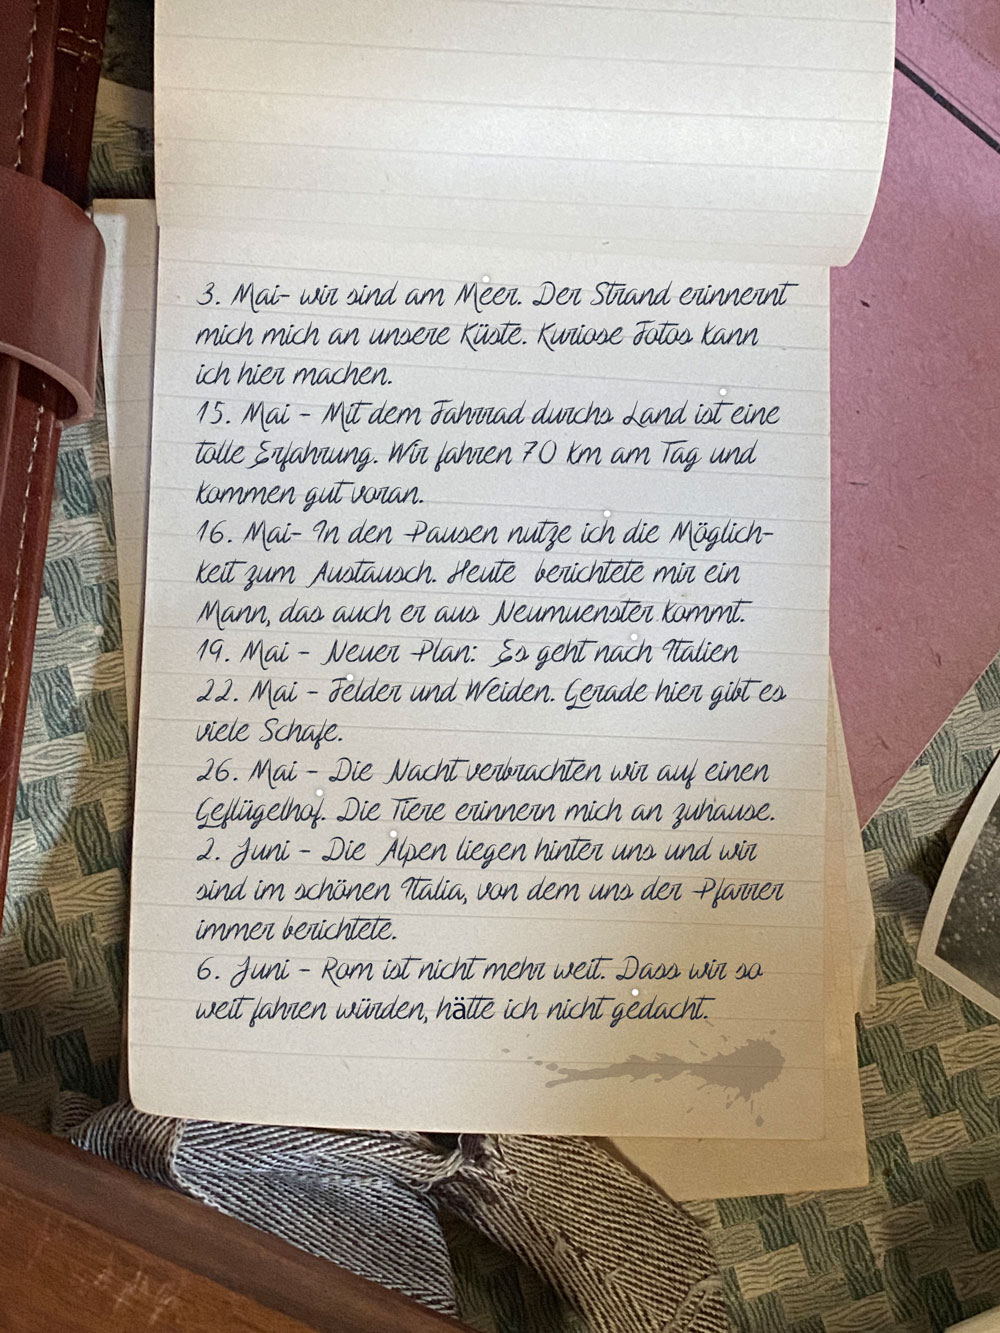 3. Mai- wir sind am Meer. Der Strand erinnernt
mich mich an unsere Küste. Kuriose Fotos kann
ich hier machen.
15. Mai - Mit dem Fahrrad durchs Land ist eine
tolle Erfahrung. Wir fahren 70 km am Tag und
kommen gut voran.
16. Mai- In den Pausen nutze ich die Möglich-
keit zum Austausch. Heute berichtete mir ein
Mann, das auch er aus Neumuenster kommt.
19. Mai - Neuer Plan: Es geht nach Italien
22. Mai - Felder und Weiden. Gerade hier gibt es
viele Schafe.
26. Mai - Die Nacht verbrachten wir auf einen
Geflügelhof. Die Tiere erinnern mich an zuhause.
2. Juni - Die Alpen liegen hinter uns und wir
sind im schönen Italia, von dem uns der Pfarrer
immer berichtete.
6. Juni - Rom ist nicht mehr weit. Dass wir so
weit fahren würden, hätte ich nicht gedacht.